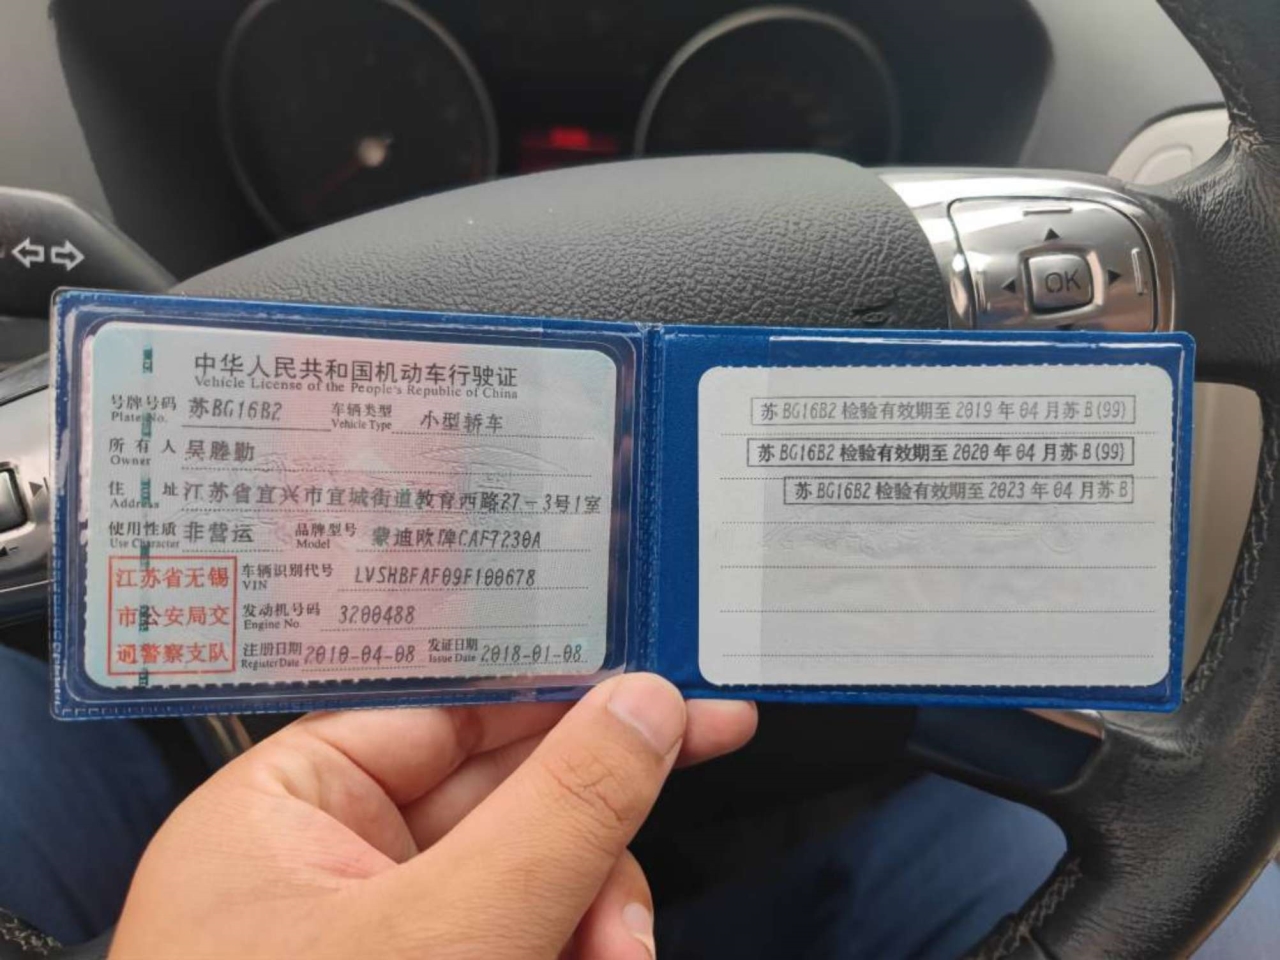 OK
中华人民共和国机动车行驶证
Vehicle License of the People's Republic of China
号牌号码 苏BG16B2 车辆类型 小型轿车
Plate No. Vehicle Type
所有人 吴滕勤
Owner
住址 江苏省宜兴市宜城街道教育西路27-3号1室
Address
使用性质 非营运 品牌型号 蒙迪欧牌CAF7230A
Use Character Model
江苏省无锡
市公安局交
通警察支队
车辆识别代号 LVSHBFAF09F100678
VIN
发动机号码 3200488
Engine No.
注册日期 2010-04-08 发证日期 2018-01-08
Register Date Issue Date
苏BG16B2 检验有效期至 2019 年 04 月苏 B(99)
苏BG16B2 检验有效期至 2020 年 04 月苏 B(99)
苏BG16B2 检验有效期至 2023 年 04 月苏 B